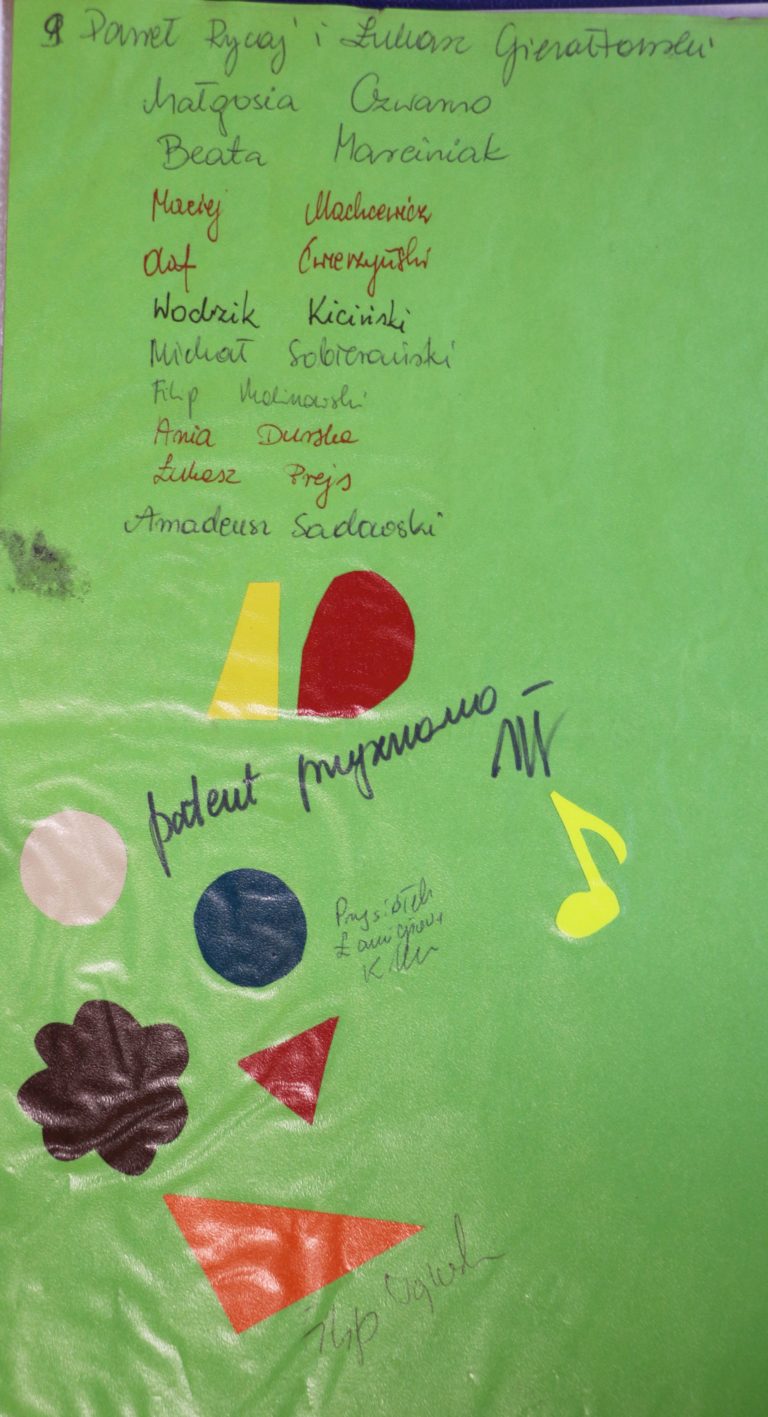 Paweł Rycaj i Łukasz Gierałtowski
Małgosia Czwarno
Beata Marciniak
Maciej Machcewicz
Olaf Ćwierzyński
Wodzik Kiciński
Michał Sobierański
Filip Malinowski
Ania Durska
Łukasz Prejs
Amadeusz Sadowski
patent przyznano –